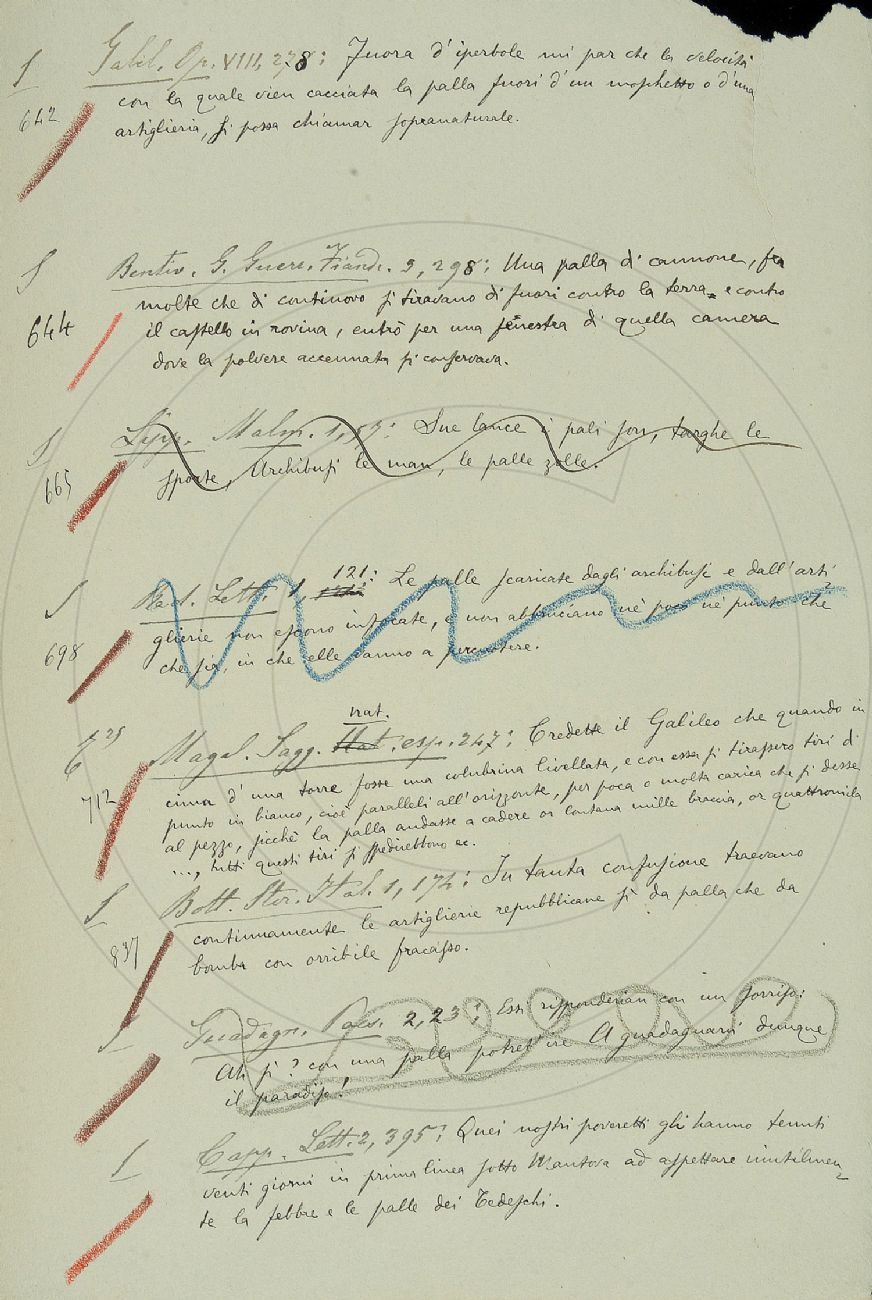 S Galil. Op. VIII, 278: Fuora d'iperbole mi par che la velocità
642 con la quale vien cacciata la palla fuori d'un moschetto o d'una
artiglieria, si possa chiamar sopranaturale.
S Bentiv. G. Guerr. Fiand. 3, 298: Una palla di cannone, fra
molte che di continovo si tiravano di fuori contro la terra e contro
644 il castello in rovina, entrò per una finestra di quella camera
dove la polvere accennata si conservava.
S Lipp. Malm. 1, Sue lance i pali son, targhe le
665 sporte, Archibusi le man, le palle zolle.
121
S Red. Lett. 1, : Le palle scaricate dagli archibusi e dall'arti-
698 glierie non escono infocate, e non abbruciano nè poco nè punto che
che sia, in che elle vanno a percuotere.
nat.
Magal. Sagg. Nat. esp. 247: Credette il Galileo che quando in
712 cima d'una torre fosse una colubrina livellata, e con essa si tirassero tiri di
punto in bianco, cioè paralleli all'orizzonte, per poca o molta carica che si desse
al pezzo, sicchè la palla andasse a cadere or lontana mille braccia, or quattromila
..., tutti questi tiri si spedirebbono ec.
S Bott. Stor. Ital. 1, 174: In tanta confusione traevano
837 continuamente le artiglierie repubblicane sì da palla che da
bomba con orribile fracasso.
S Guadagn. Poes. 2, 23: Essi risponderian con un sorriso:
Ah sì? con una palla potret'ire A guadagnarvi dunque
il paradiso!
S Capp. Lett. 2, 395: Quei nostri poveretti gli hanno tenuti
venti giorni in prima linea sotto Mantova ad aspettare inutilmen-
te la febbre e le palle dei Tedeschi.